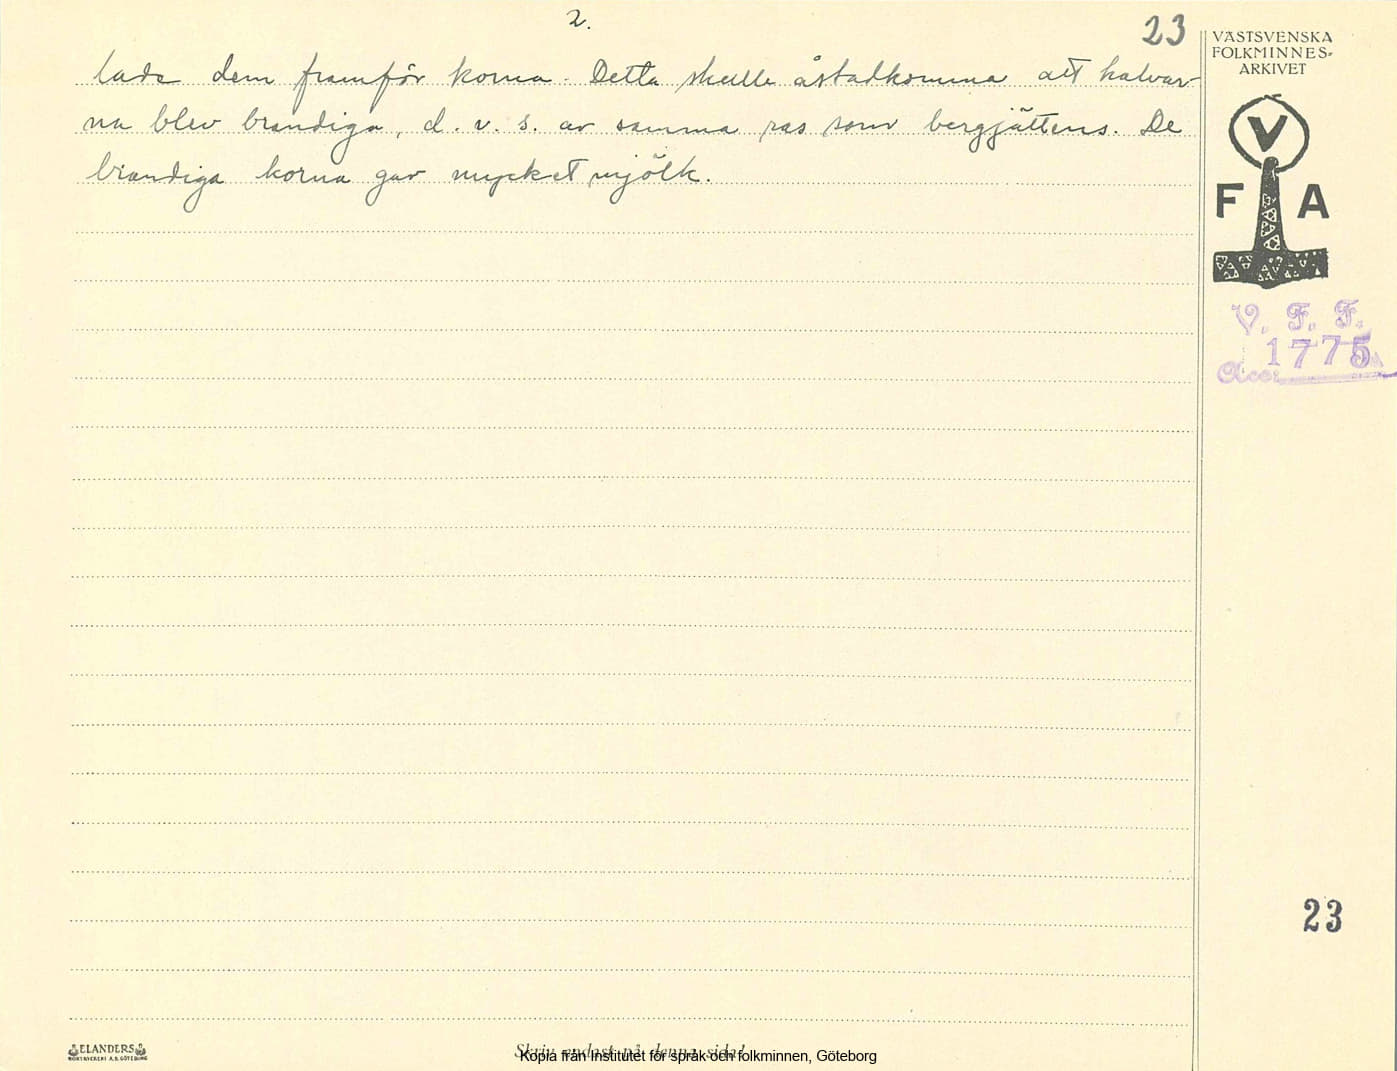 2.
23
lade dem framför korna. Detta skulle åstadkomma att kalvar-
na blev brandiga, d. v. s. av samma ras som bergjättens. De
brandiga korna gav mycket mjölk.
VÄSTSVENSKA
FOLKMINNES-
ARKIVET
V
F A
V. F. F.
1775
Acc:
23
ELANDERS
BOKTRYCKERI A.B. GÖTEBORG
Skriv endast på denna sida!
Kopia från Institutet för språk och folkminnen, Göteborg